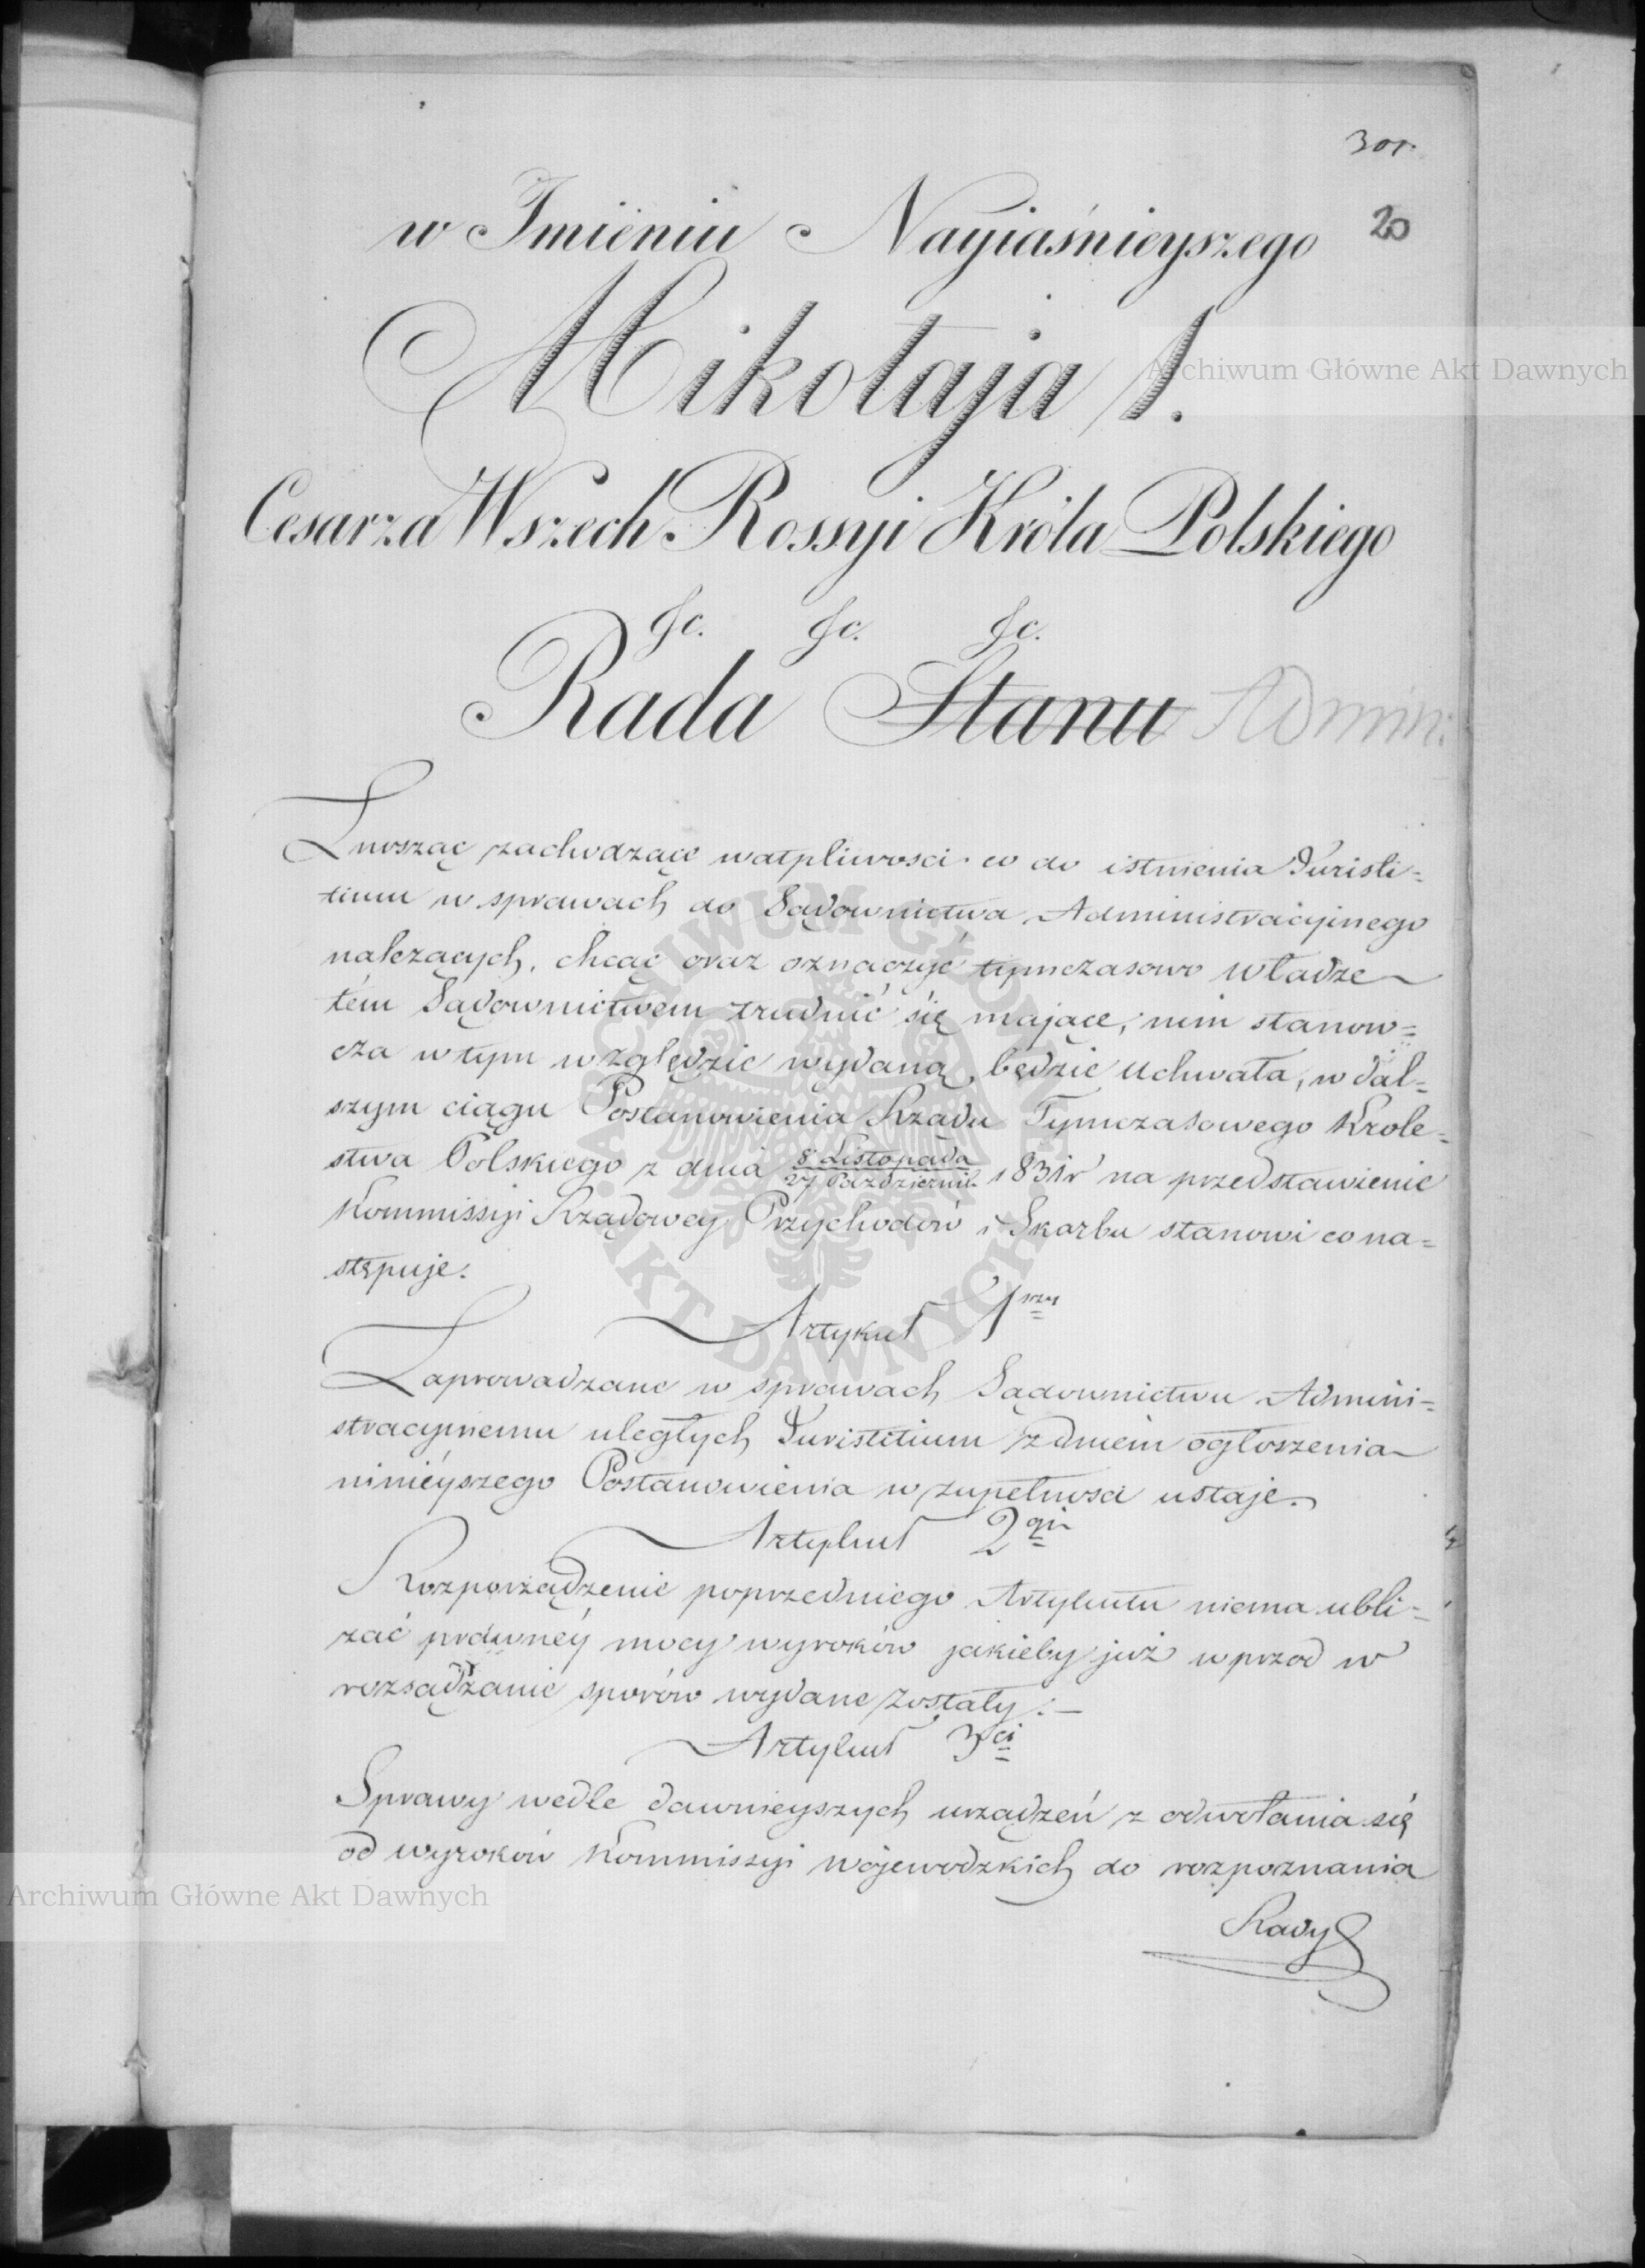 301.
20
w Imieniu Nayiaśnieyszego
Mikołaja I.
Archiwum Główne Akt Dawnych
Cesarza Wszech Rossyi Króla Polskiego
&c. &c. &c.
Rada Stanu Admin:
Znosząc zachodzące wątpliwosci co do istnienia Juristi=
tium w sprawach do Sądownictwa Administracyinego
należących, chcąc oraz oznaczyć tymczasowo władze
tém Sądownictwem trudnić się mające, nim stanow=
cza w tym względzie wydaną będzie Uchwała, w dal=
szym ciągu Postanowienia Rządu Tymczasowego Krole=
stwa Polskiego z dnia 8 Listopada / 27 Październik. 1831r na przedstawienie
Kommissyi Rządowey Przychodów i Skarbu stanowi co na=
stępuje.
Artykuł 1wszy
Zaprowadzone w sprawach Sądownictwu Admini=
stracyinemu uległych Juristitium z dniem ogłoszenia
ninieyszego Postanowienia w zupełnosci ustaje.
Artykuł 2gi
Rozporządzenie poprzedniego Artykułu niema ubli=
żać prawnéy mocy wyroków jakieby już wprzod w
rozsądzanie sporów wydane zostały.—
Artykuł 3ci
Sprawy wedle dawnieyszych urządzeń z odwołania się
od wyroków Kommissyi Wojewodzkich do rozpoznania
Archiwum Główne Akt Dawnych
Rady
ARCHIWUM GŁÓWNE AKT DAWNYCH